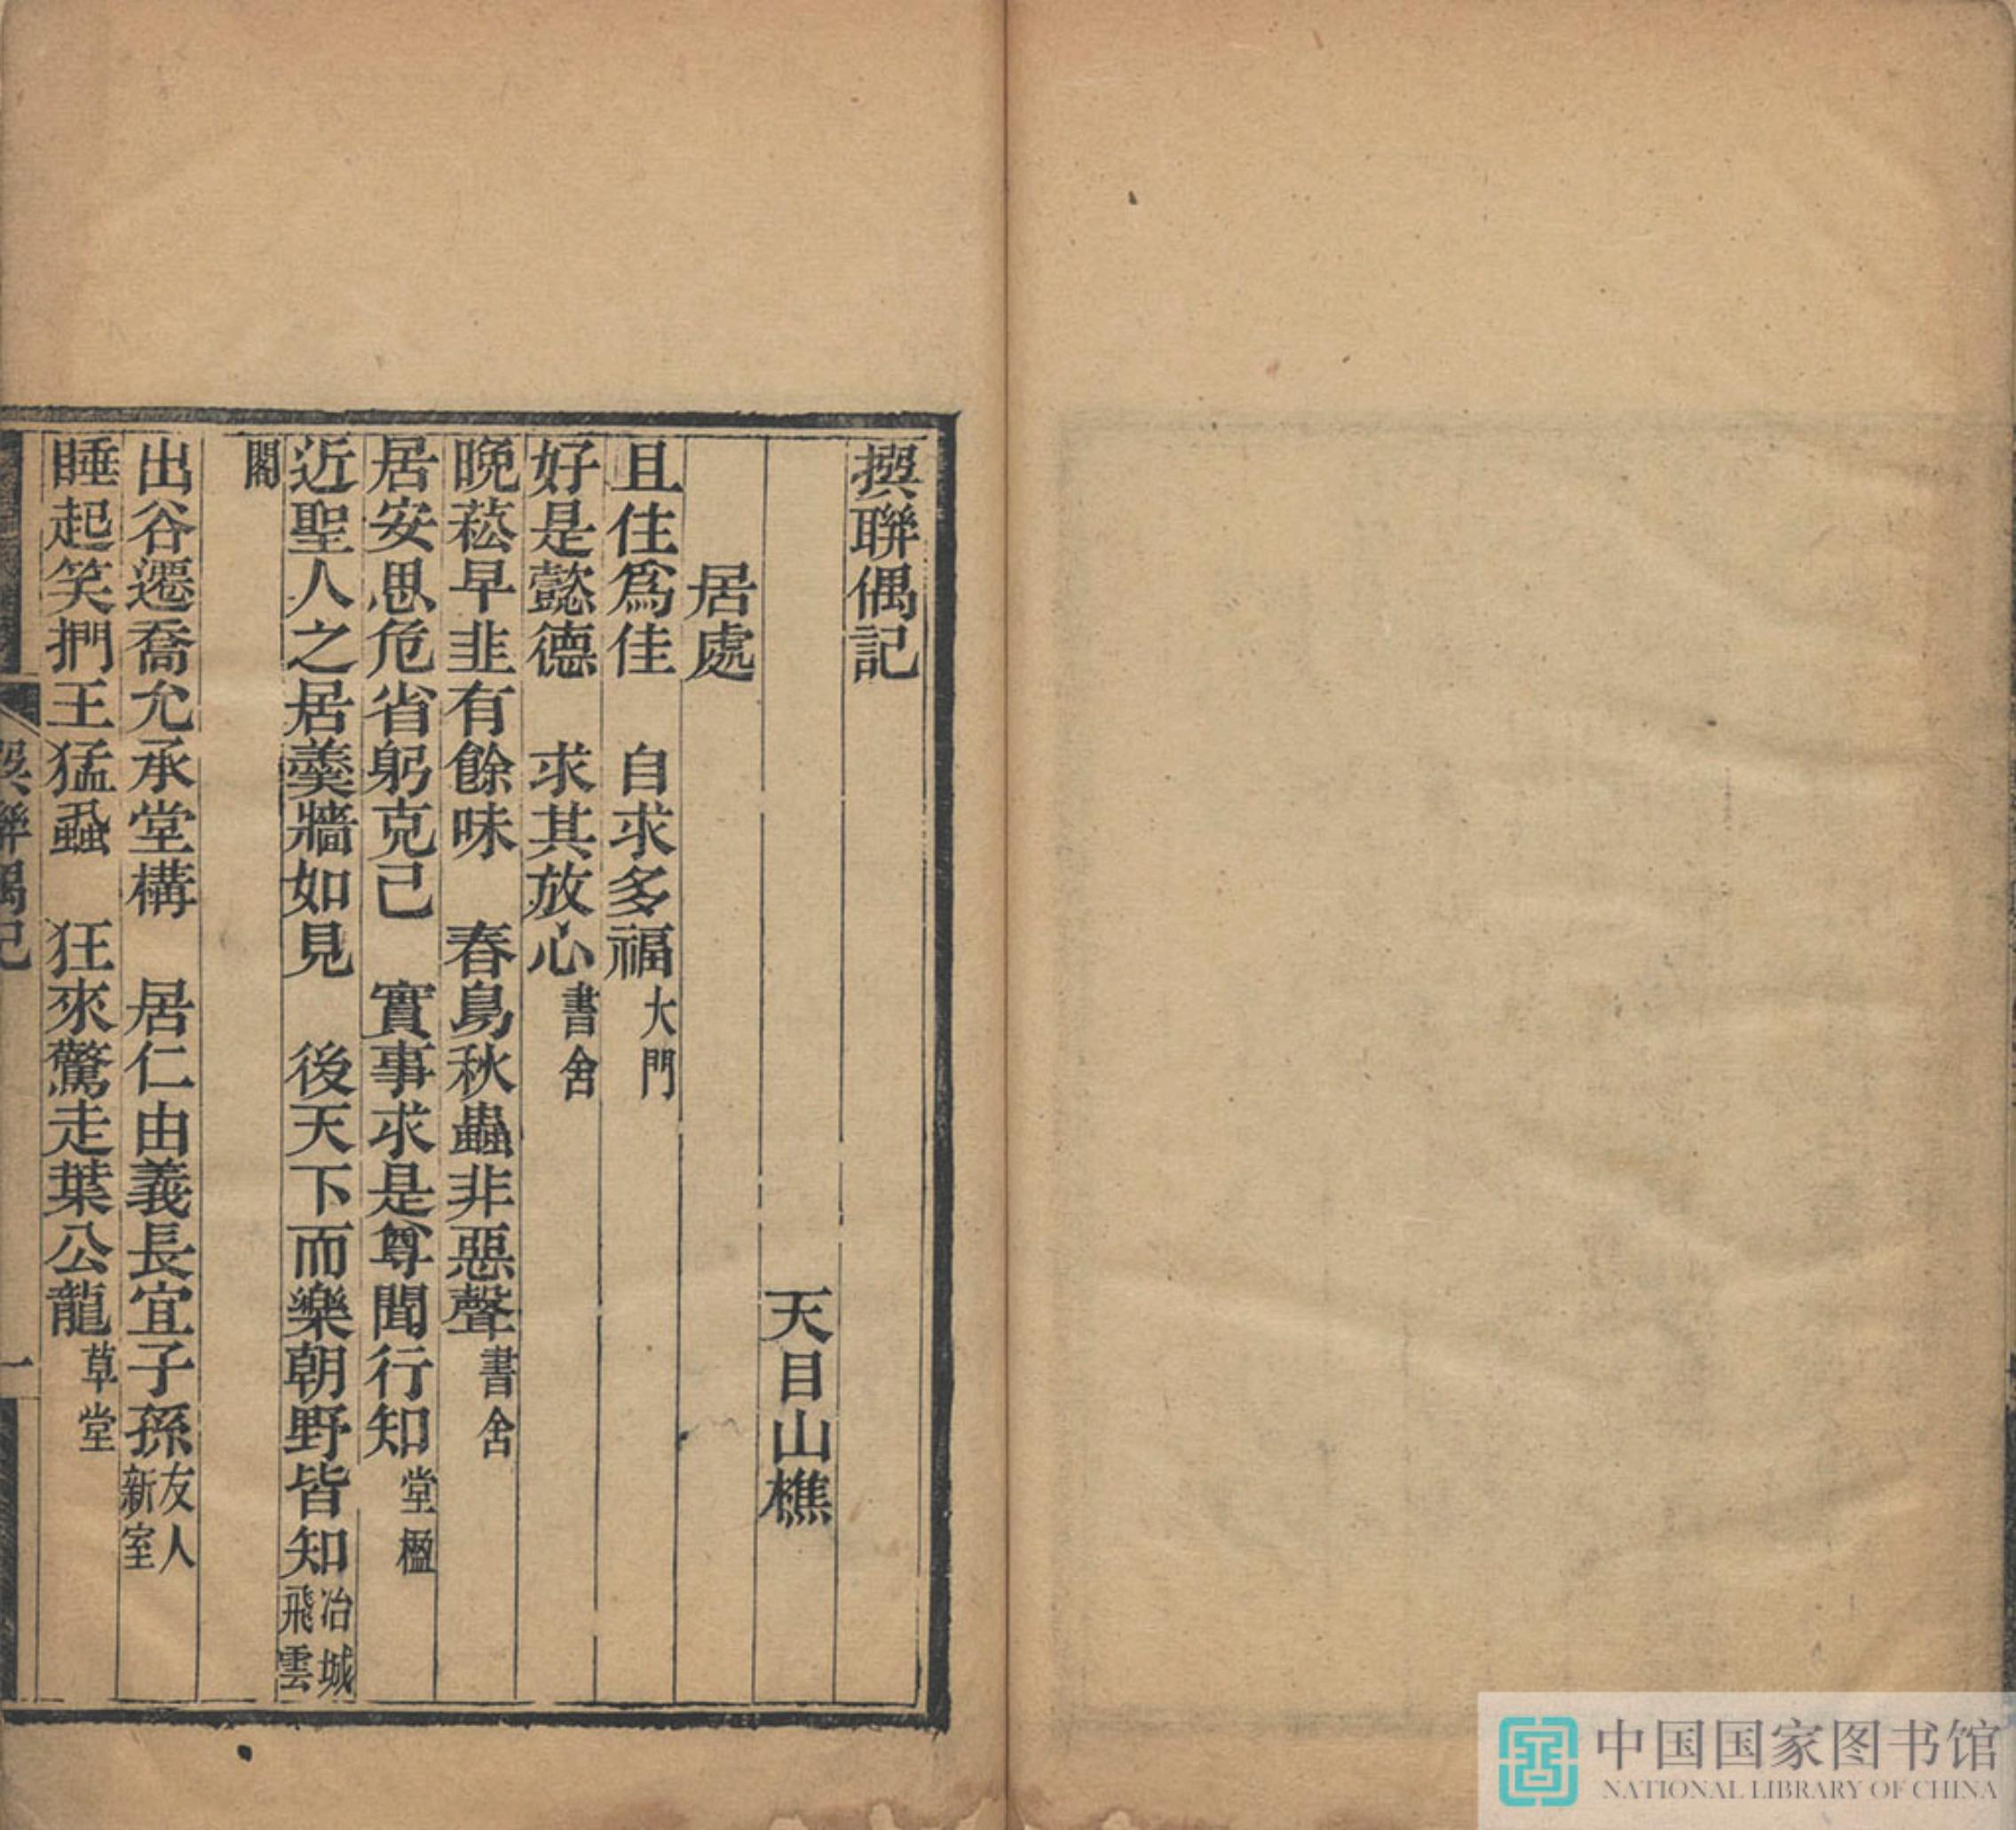 撰聯偶記
天目山樵
居處
且住爲佳　自求多福大門
好是懿德　求其放心書舍
晚菘早韭有餘味　春鳥秋蟲非惡聲書舍
居安思危省躬克己　實事求是尊聞行知堂楹
近聖人之居羹牆如見　後天下而樂朝野皆知冶城飛雲
閣
出谷遷喬允承堂構　居仁由義長宜子孫友人新室
睡起笑捫王猛蝨　狂來驚走葉公龍草堂
撰聯偶記
一
中国国家图书馆
NATIONAL LIBRARY OF CHINA